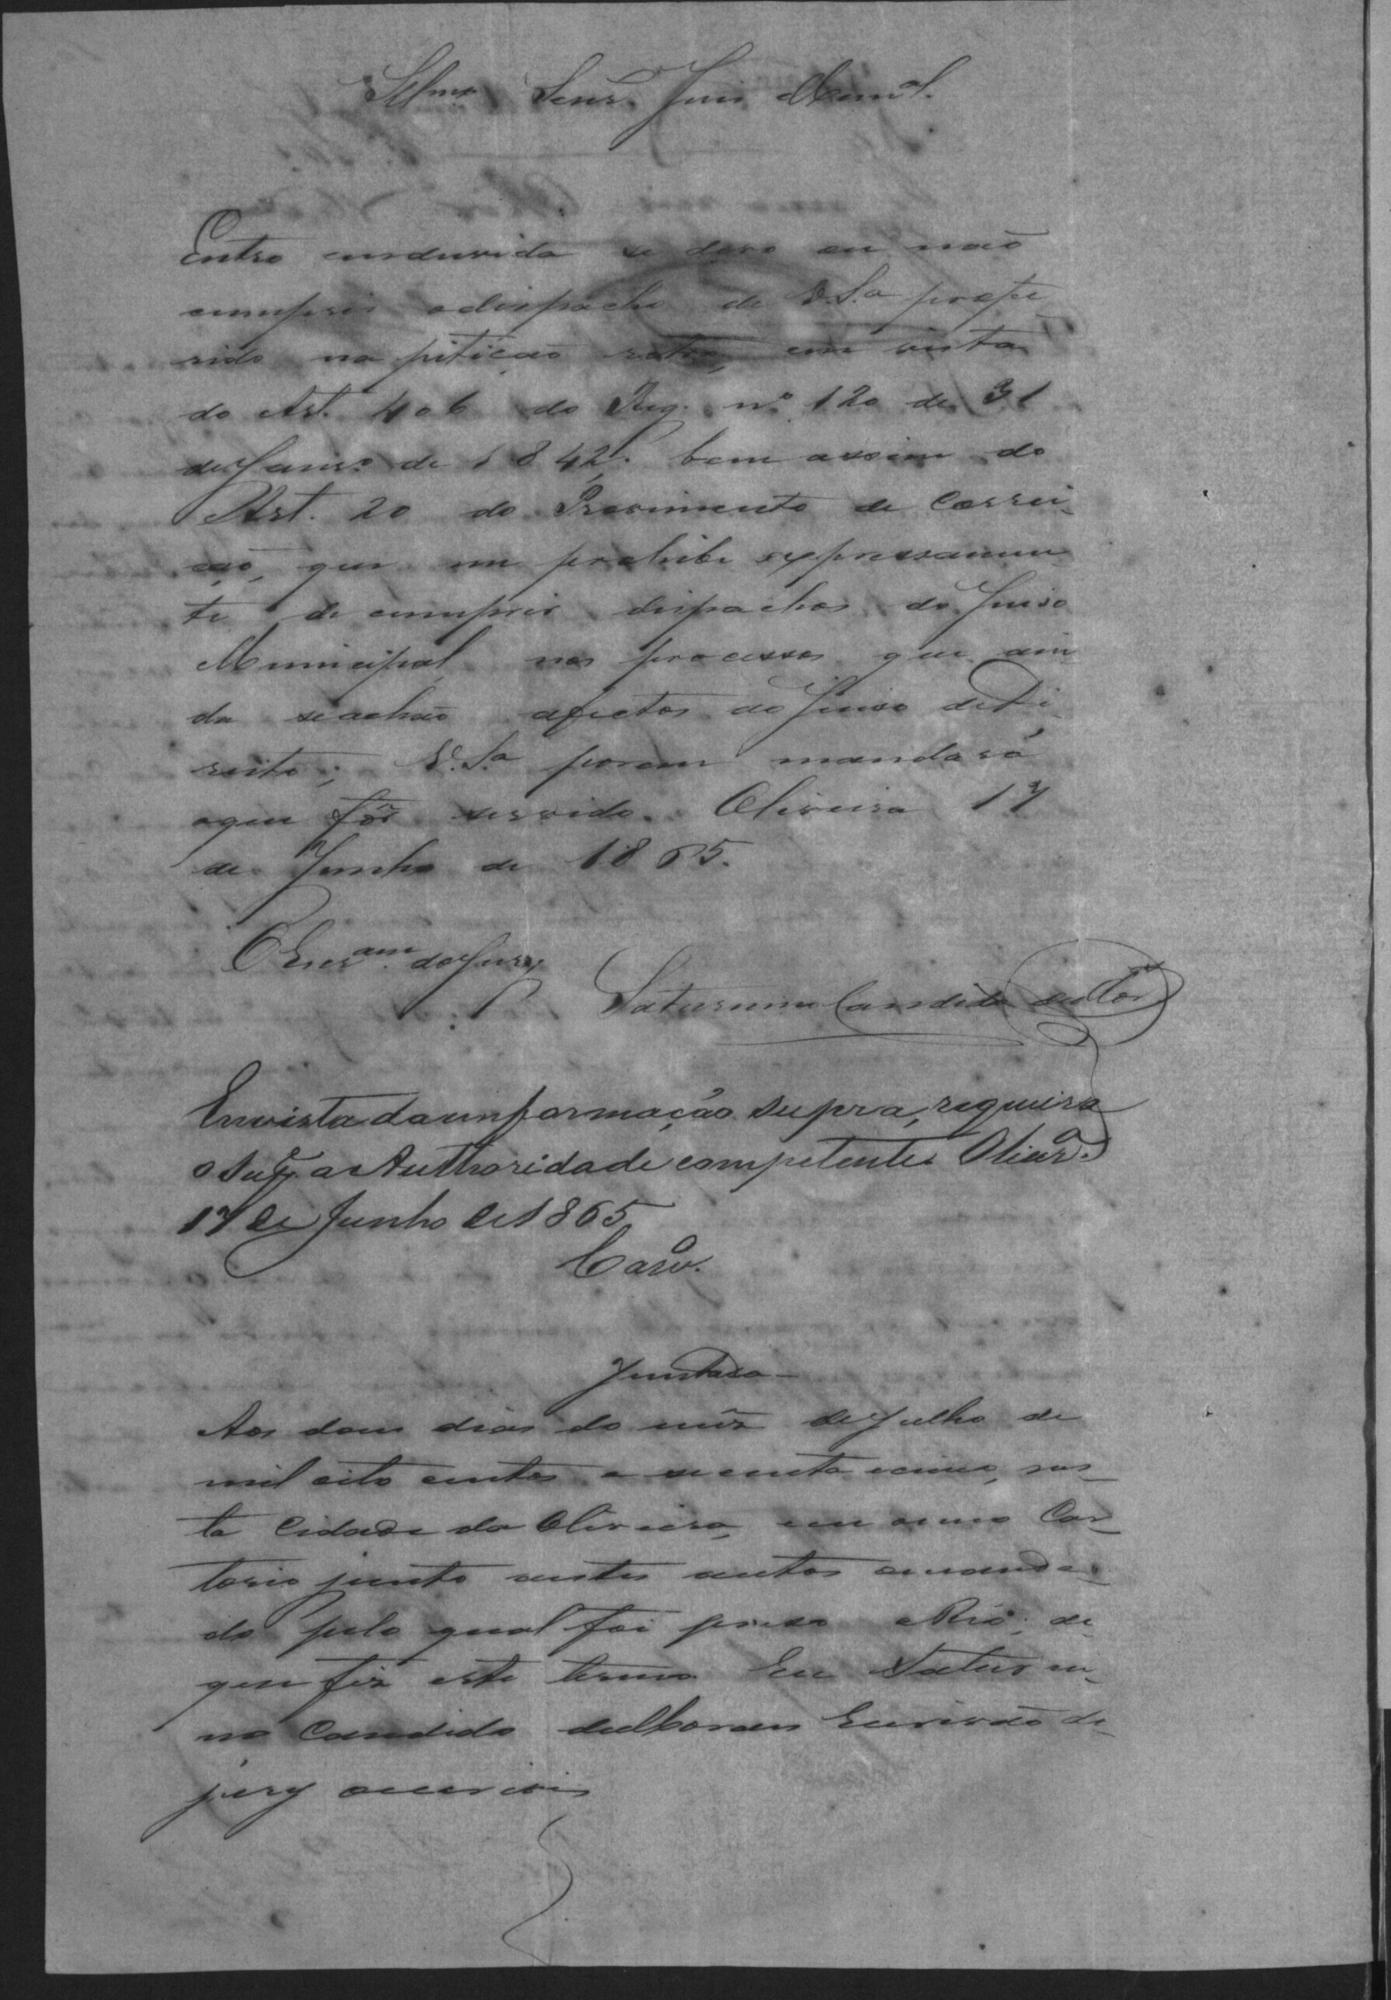 Illmo Senr. Juis Munal.
Entro emduvida se devo ou não
cumprir odispacho de V.Sa profe
rido na pitição retro, em vista
do Art. 406 do Reg. nº. 120 de 31
de Janro de 1842, bem assim do
Art. 20 do Provimento de Correi-
ção, que me prohibe expressamen-
te de cumprir dispachos do Juiso
Municipal nos processos que ain-
da seachão afectos ao Juiso de Di-
reito; V.Sa porem mandará
oque fôr servido. Oliveira 17
de Junho de 1865.
O Escram do Jury
Saturnino Candido
Emvista da imformação supra, requeira
o Supe a Authoridade competente. Olivra.
17 de Junho de 1865
Carvo.
Juntada
Aos dous dias do mês de Julho de
mil oito centos e secenta ecinco, nes-
ta Cidade da Oliveira, em omeo Car-
torio junto aestes autos omanda-
do pelo qual foi preso o Reo, do
que fiz este termo. Eu Saturni-
no Candido Escrivão do
jury oescrivi